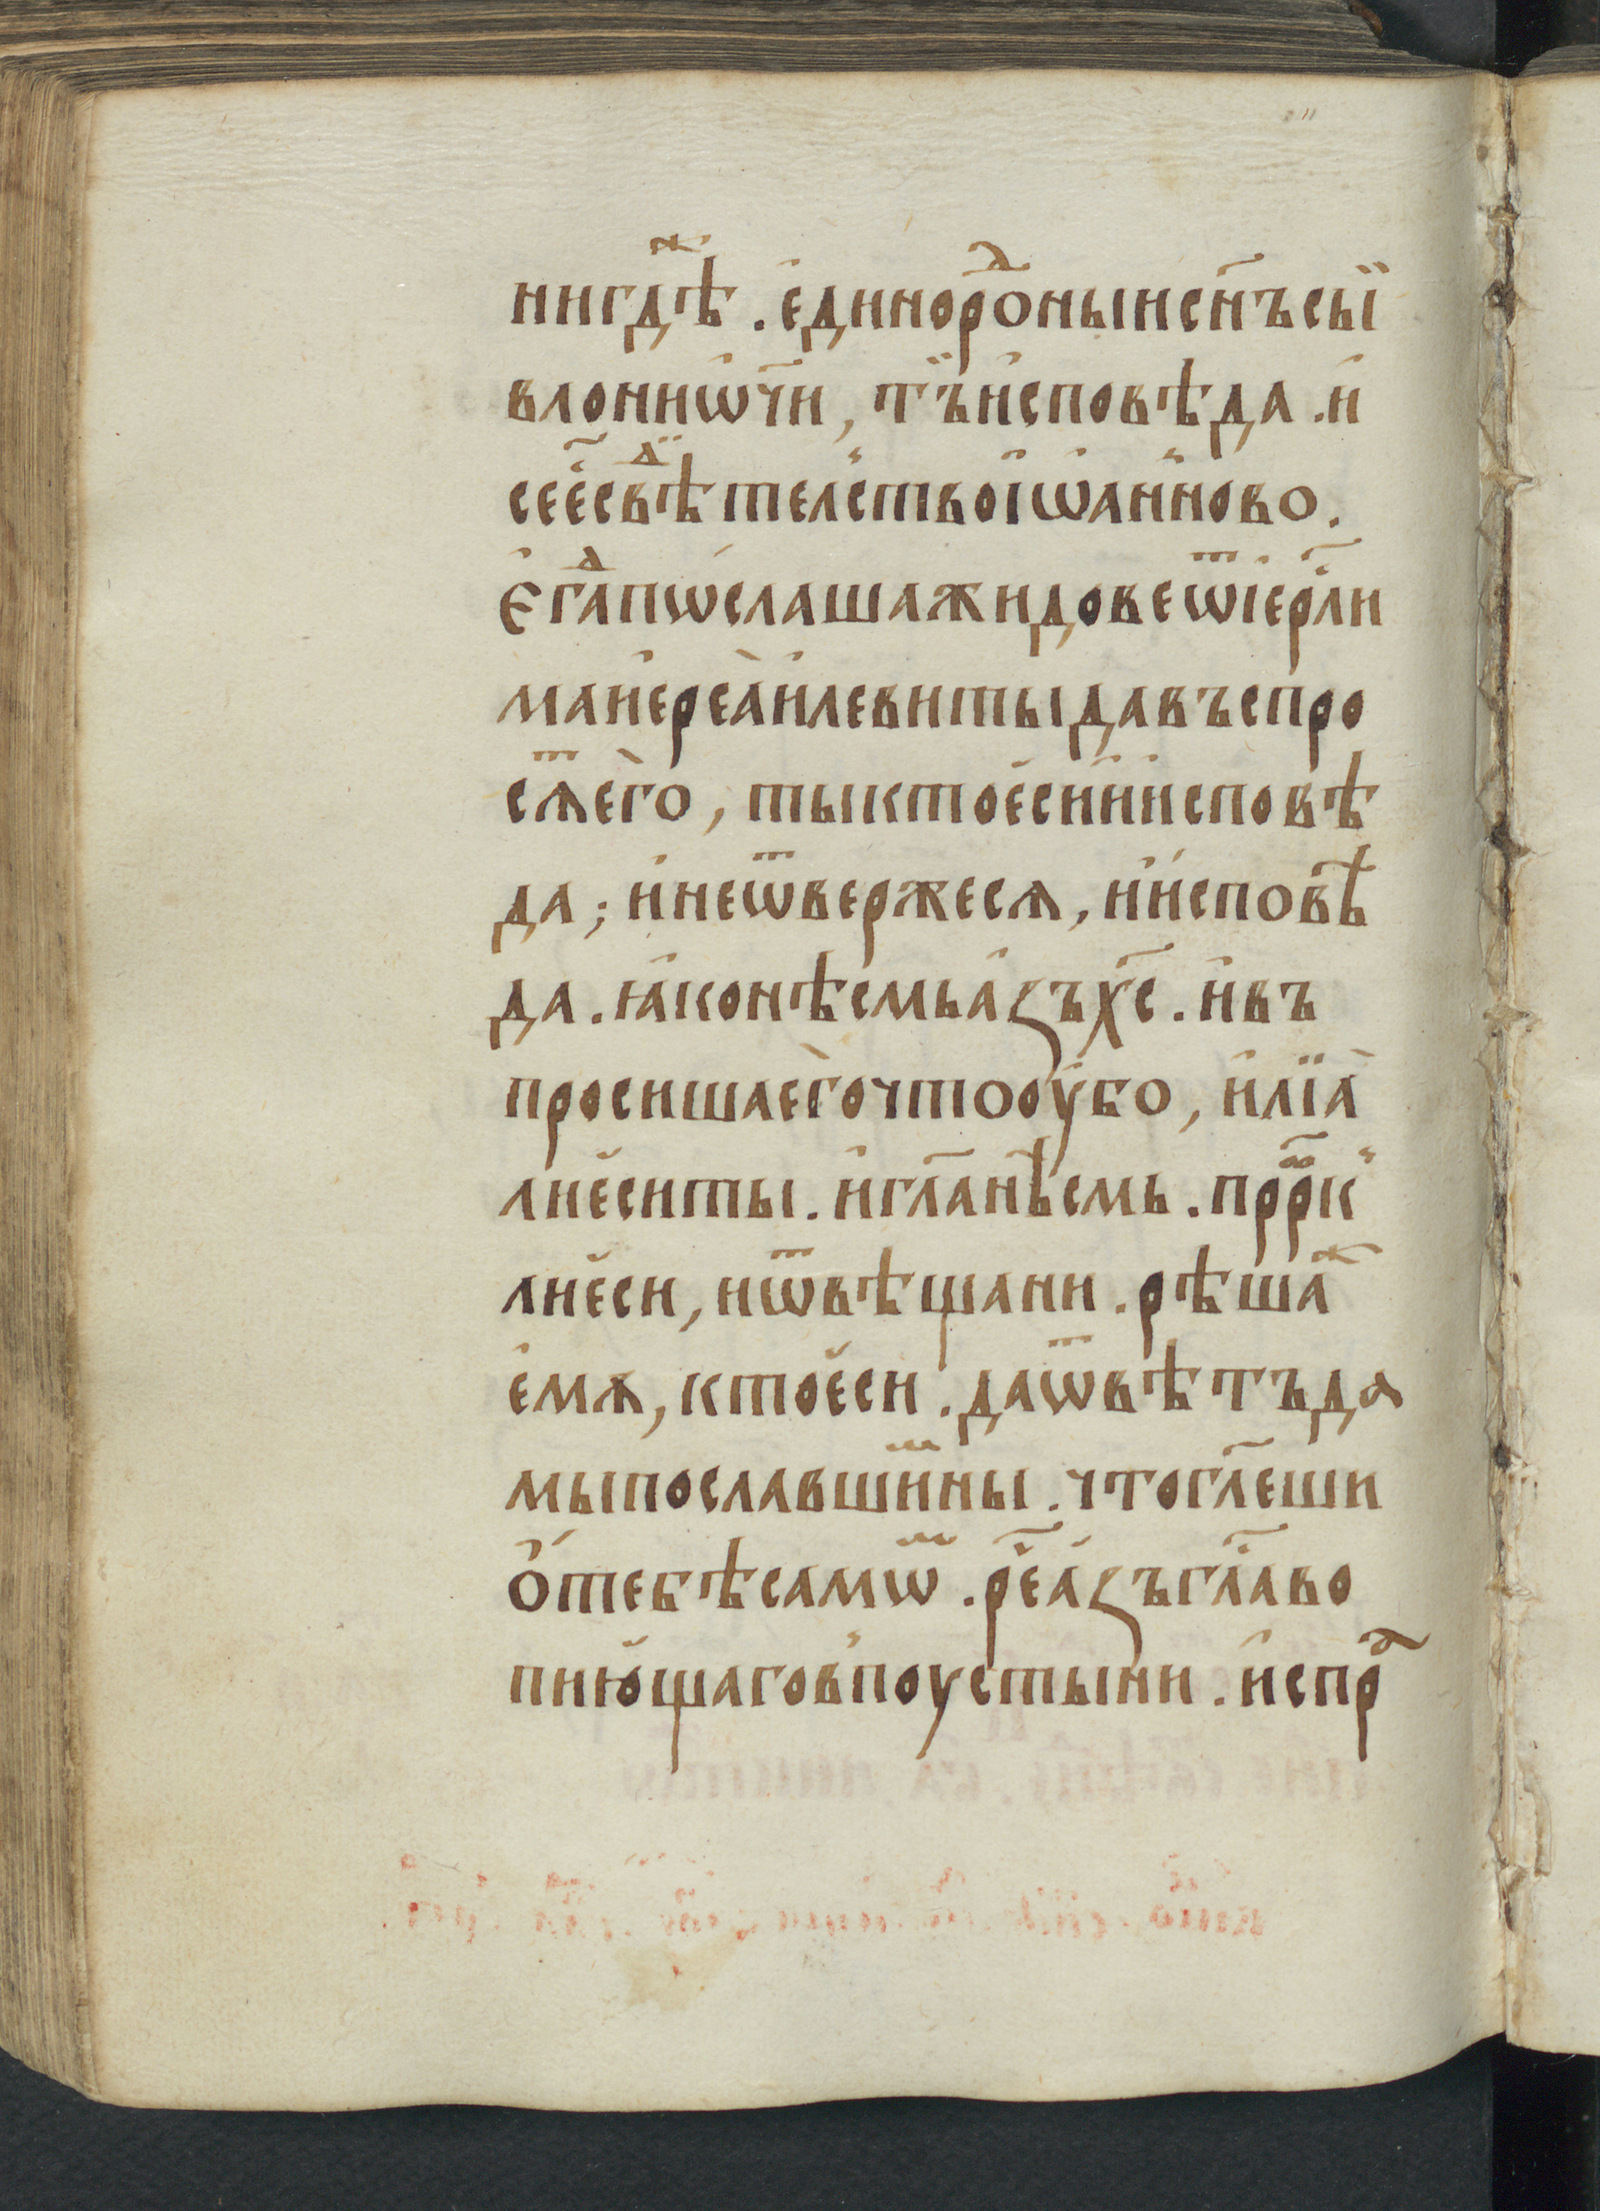 нигдѣⷤ. е҆динороⷣныи сн҃ъ сыї
влони ѿчи, тъи҆споведа. и҆
се е҆свѣⷣтелство іѡа҆нново.
Єгаⷣпѡслаша жидове ѿ іерⷭ҇ли
ма и҆ереа̀ и҆левиты да въспро
сѧⷮ его̀, ты кто е҆си и҆ и҆сповѣ
да; и҆ не ѿвержеся, и҆ и҆сповѣ
да. ꙗ҆ко нѣсмь а҆зъ хс҃. и҆ въ
просиша его̀ что оу҆бо, и҆лїа̀
ли е҆си ты. и҆ гл҃а нѣсмь. прⷪ҇рк
ли е҆си, и ѿвѣща ни. рѣшаⷤ
е҆мѧ, кто е҆си. да ѿвѣтъ да
мы пославшиⷨ ны. что гл҃еши
ѻ҆ тебѣ самѡⷨ. ре҃ а҆зъ гл҃а во
пию҆щаго в поустыни. и҆спрⷶ